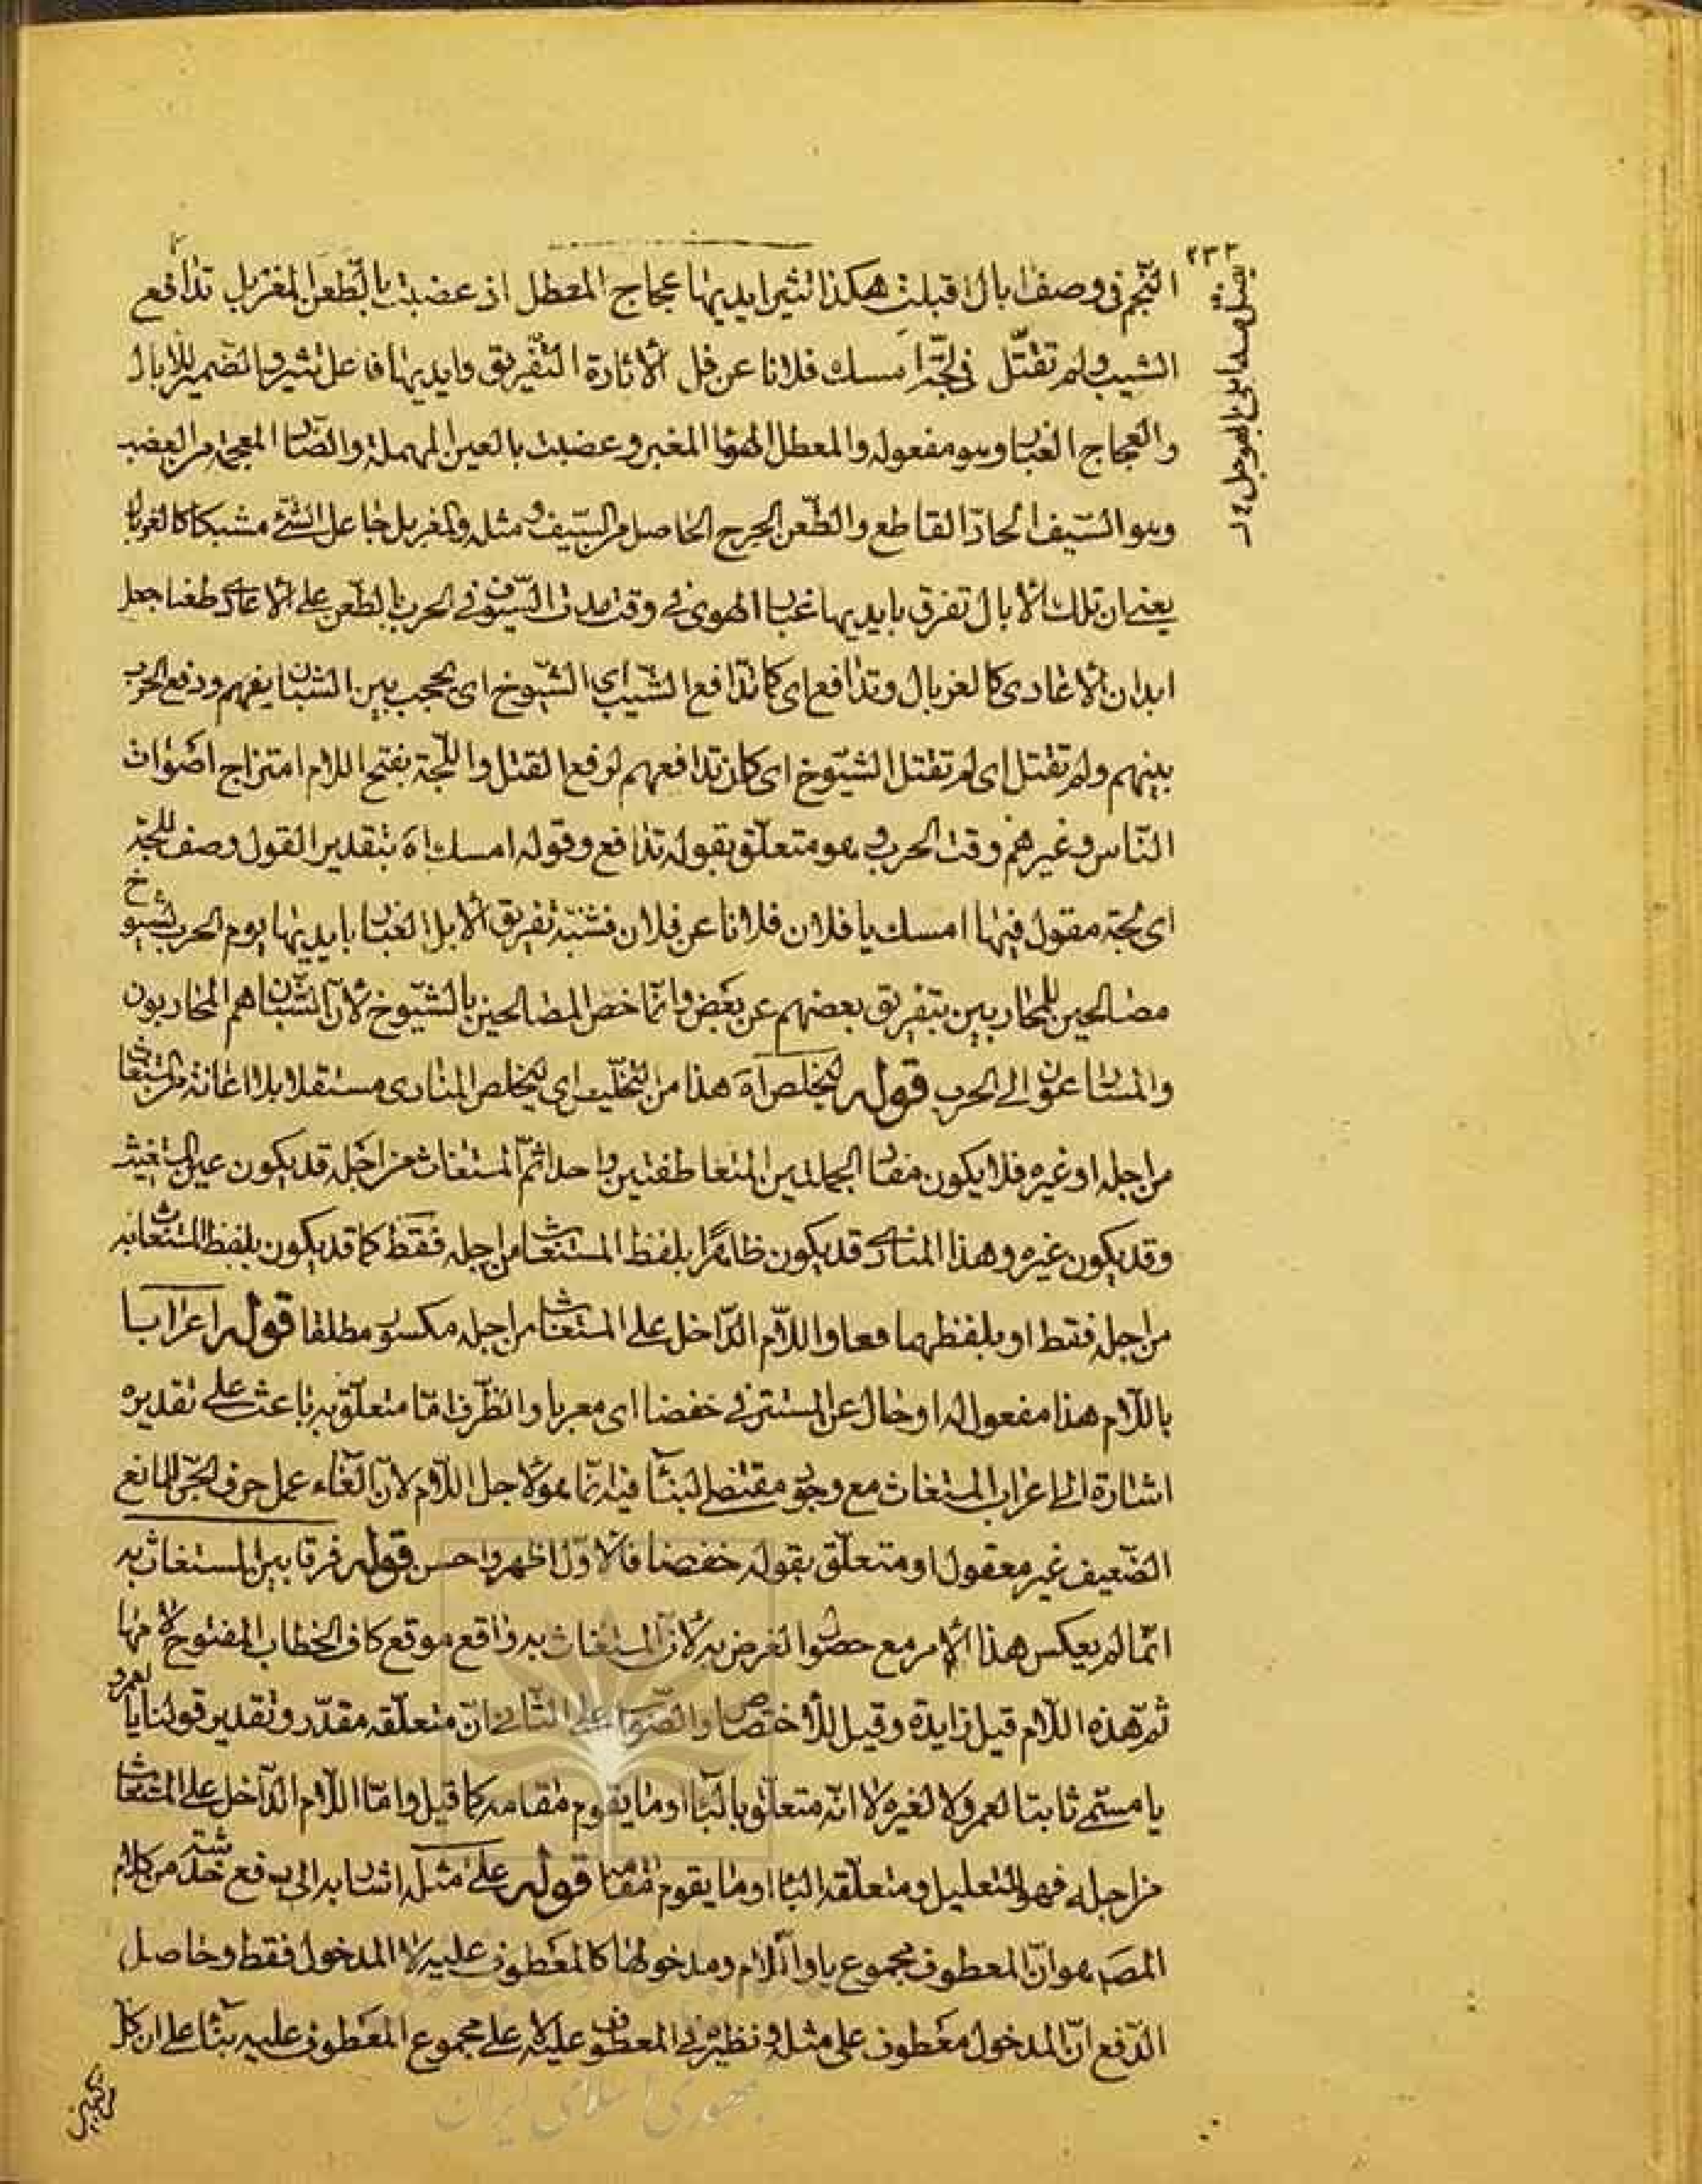 ٢٣٣
النجم فى وصف ابال اقبلت هكذا تثير ايديها عجاج المعطل اذ عضبت بالطعن المغربل تدافع
الشيب ولم تقتّل فى لجّة امسك فلانا عن فل الاثارة التّفريق وايديها فاعل تثير والضمير للابال
والعجاج الغبار وهو مفعوله والمعطل الهواء المغبر وعضبت بالعين المهملة والضاد المعجمة من العضب
وهو السّيف الحادّ القاطع والطّعن الجرح الحاصل من السّيف ومثله والمغربل جاعل الشئ مشبكا كالغربال
يعنى ان تلك الابال تفرق بايديها غبار الهوى فى وقت السّيوف فى الحرب بالطّعن على الاعادى طعنا جعل
ابدان الاعادى كالغربال وتدافع اى كما تدافع الشّيب اى الشّيوخ اى تحجب بين الشبان يفهم ودفع الحرب
بينهم ولم تقتل اى لم تقتل الشيّوخ اى كان تدافعهم لرفع القتل واللّجة بفتح اللام امتزاج اصوات
النّاس وغيرهم وقت الحرب وهو متعلّق بقوله تدافع وقوله امسك اه بتقدير القول وصف للجة
اى لجّة مقول فيها امسك يا فلان فلانا عن فلان فشبّه تفريق الابل الغبار بايديها يوم الحرب بشيوخ
مصالحين للمحاربين بتفريق بعضهم عن بعض وانّما خص المصالحين بالشيّوخ لأنّ الشّبان هم المحاربون
والمسارعون الى الحرب قوله ليخلص اه هذا من التخليص اى ليخلص المنادى مستقلا بلا اعانة من المستغاث
من اجله او غيره فلا يكون مفاد الجملتين المتعاطفتين واحدا ثمّ المستغاث من اجله قد يكون عين المستغيث
وقد يكون غيره وهذا المنادى قد يكون ظاهرًا بلفظ المستغاث من اجله فقط كما قد يكون بلفظ المستغاث به
من اجله فقط او بلفظهما معا واللاّم الدّاخل على المستغاث من اجله مكسور مطلقا قوله اعرابا
باللاّم هذا مفعول له او حال عن المستتر فى خفضا اى معربا والظّرف امّا متعلّق به باعث على تقديره
اشارة الى اعراب المستغاث مع وجود مقتضى البناء فيه انّما هو لاجل اللاّم لانّ الغاء عمل حرف الجرّ للمانع
الضّعيف غير معقول او متعلّق بقوله خفضا فالاوّل اظهر واحسن قوله فرقا بين المستغاث به
انّما لم يعكس هذا الامر مع حصول الغرض به لانّ المستغاث به واقع موقع كاف الخطاب المفتوح لامها
ثمّ هذه اللاّم قيل زايدة وقيل للاختصاص والصّواب على الثّانى انّ متعلّقه مقدّر وتقدير قولنا يا لعمرو
يا ثابتا لعمرو لا لغيره لا انّه متعلّق بالنّداء او ما يقوم مقامه كما قيل وامّا اللاّم الدّاخل على المستغاث
من اجله فهو للتعليل ومتعلّقه النداء او ما يقوم مقامه قوله على مثله اشار به الى دفع خدشته من كلام
المصَ هو انّ المعطوف مجموع يا واللاّم ومدخولها كالمعطوف عليه لا المدخول فقط وحاصل
الدّفع انّ المدخول معطوف على مثله ونظيره فى المعطوف عليه لا على مجموع المعطوف عليه بناء على ان كلّ